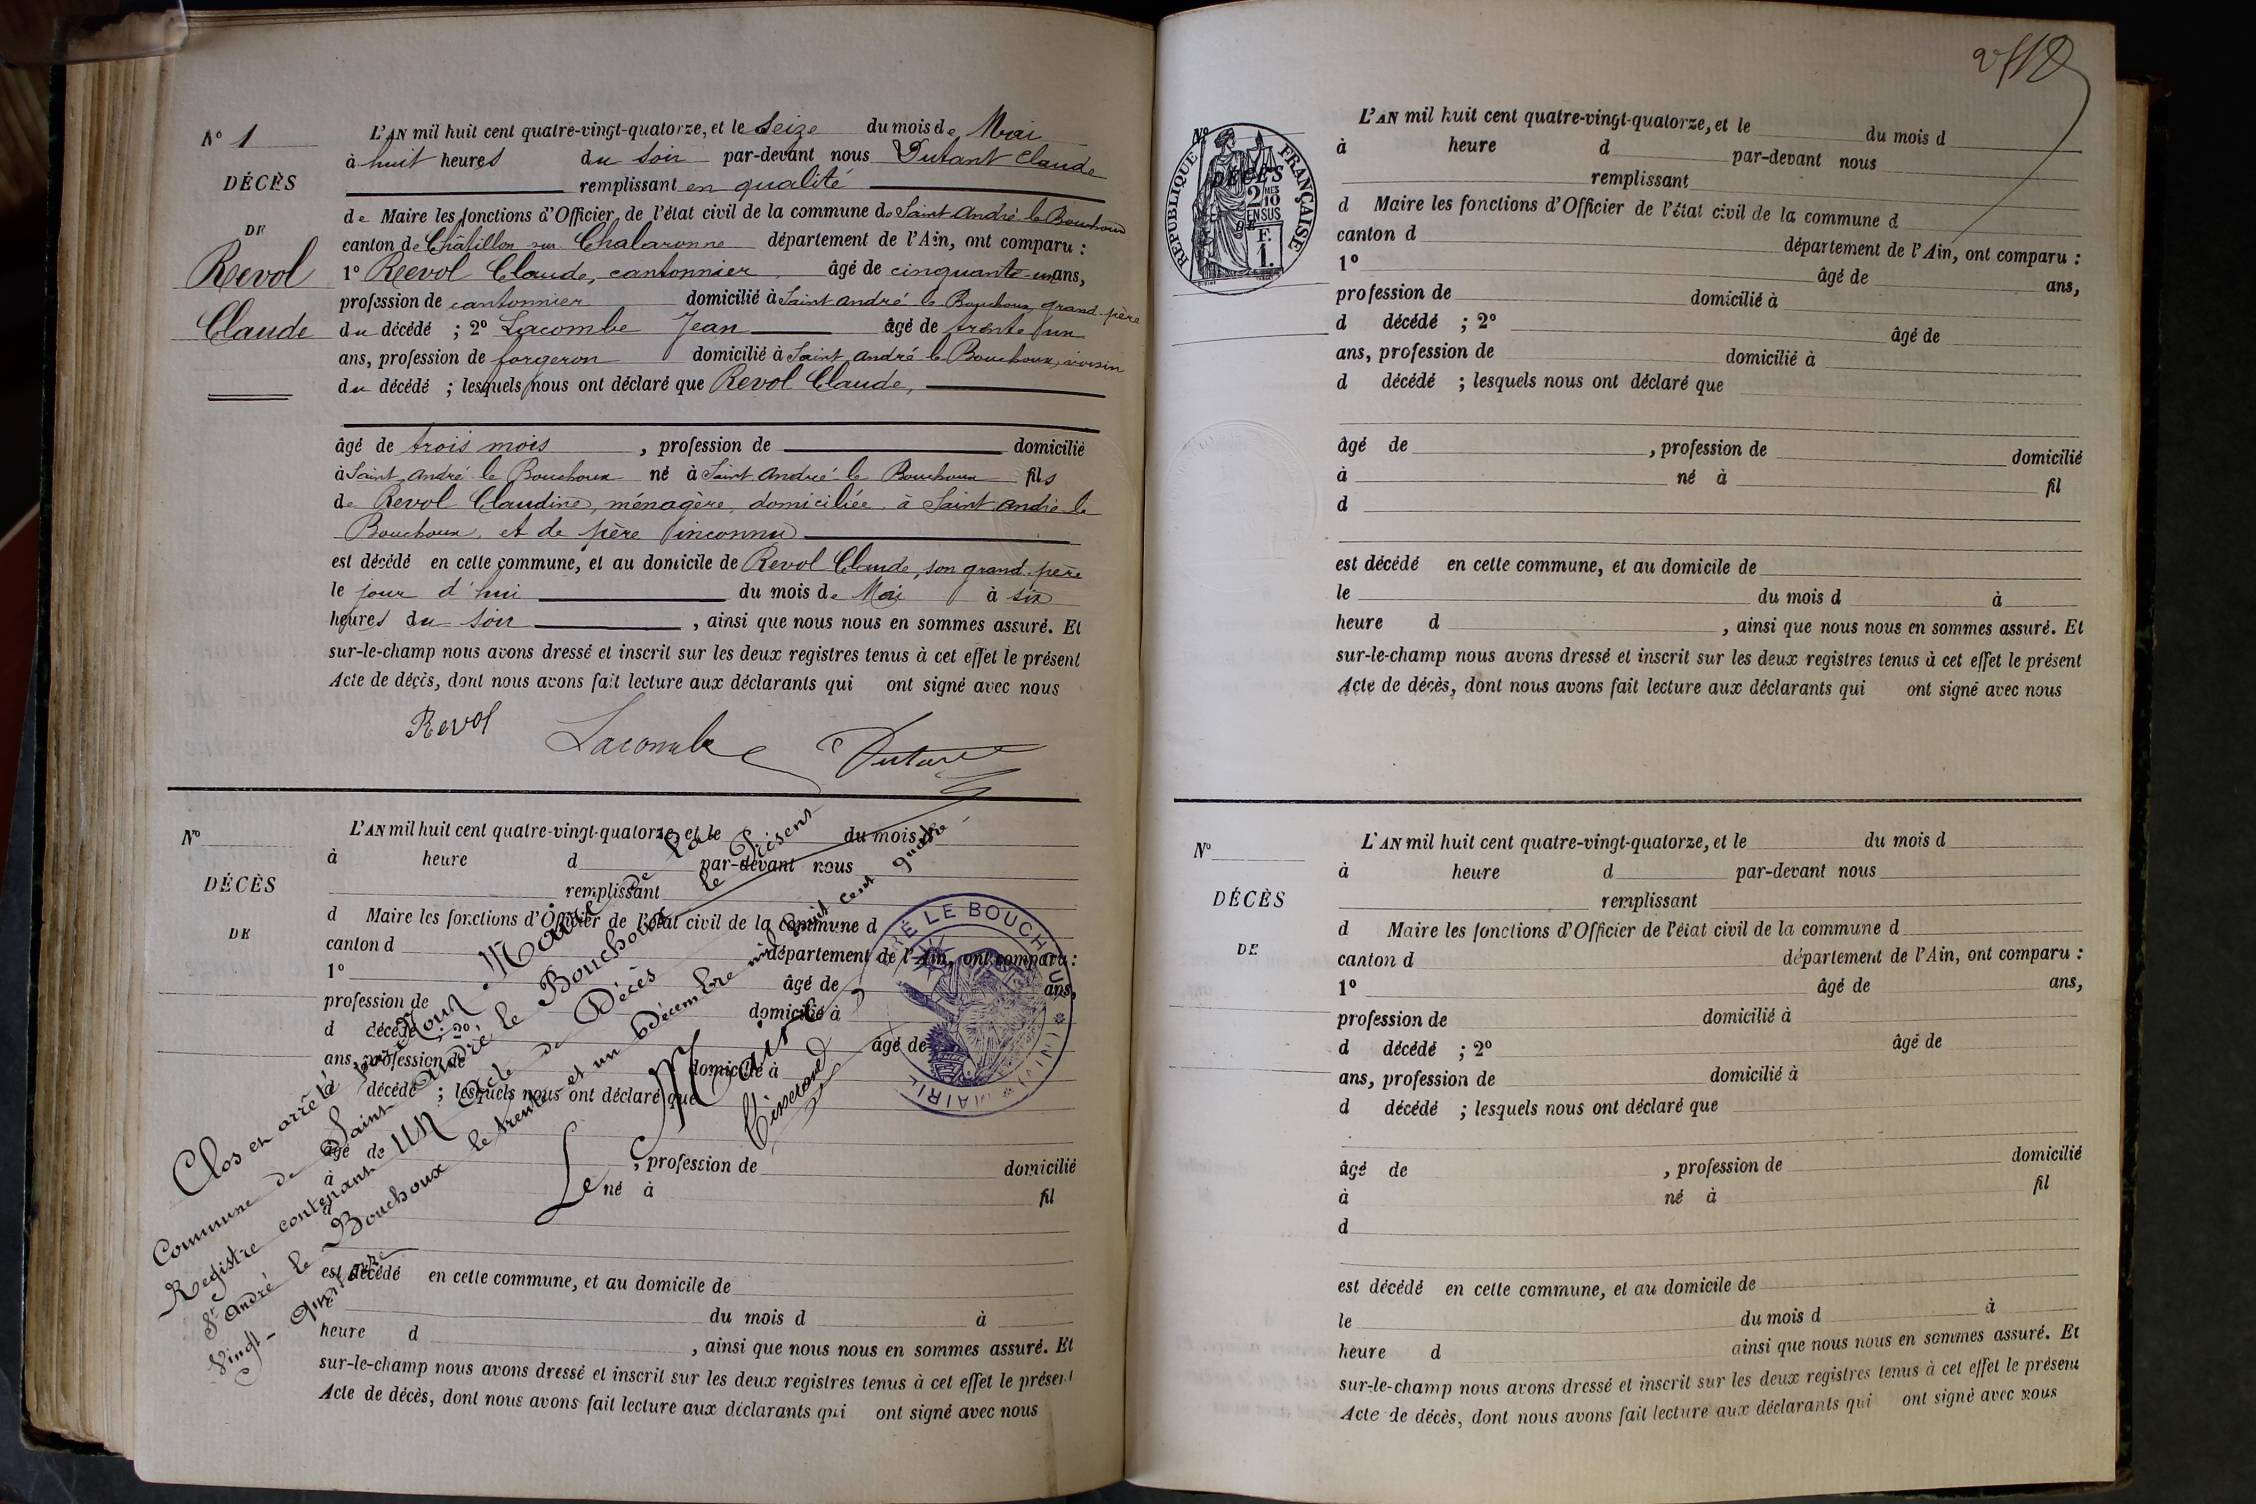 N° 1
DÉCÈS
DE
Revol
Claude
L'AN mil huit cent quatre-vingt-quatorze, et le Seize du mois de Mai
à huit heures du soir par-devant nous Dutant Claude
remplissant en qualité
de Maire les fonctions d'Officier de l'état civil de la commune de Saint André le Bouchoux
canton de Châtillon sur Chalaronne département de l'Ain, ont comparu :
1° Revol Claude, cantonnier âgé de cinquante-un ans,
profession de cantonnier domicilié à Saint André le Bouchoux grand-père
du décédé ; 2° Lacombe Jean âgé de trente un
ans, profession de forgeron domicilié à Saint André le Bouchoux, voisin
du décédé ; lesquels nous ont déclaré que Revol Claude,
âgé de trois mois , profession de domicilié
à Saint André le Bouchoux né à Saint André le Bouchoux fils
de Revol Claudine, ménagère, domiciliée à Saint André le
Bouchoux, et de père inconnu
est décédé en cette commune, et au domicile de Revol Claude, son grand père
le jour d'hui du mois de Mai à six
heures du soir , ainsi que nous nous en sommes assuré. Et
sur-le-champ nous avons dressé et inscrit sur les deux registres tenus à cet effet le présent
Acte de décès, dont nous avons fait lecture aux déclarants qui ont signé avec nous
Revol Lacombe
N°
DÉCÈS
DE
L'AN mil huit cent quatre-vingt-quatorze, et le du mois d
à heure d par-devant nous
remplissant
d Maire les fonctions d'Officier de l'état civil de la commune d
canton d département de l'Ain, ont comparu :
1° âgé de ans,
profession de domicilié à
d décédé ; 2° âgé de
ans, profession de domicilié à
d décédé ; lesquels nous ont déclaré que
âgé de , profession de domicilié
à né à fil
d
est décédé en cette commune, et au domicile de
le du mois d à
heure d , ainsi que nous nous en sommes assuré. Et
sur-le-champ nous avons dressé et inscrit sur les deux registres tenus à cet effet le présent
Acte de décès, dont nous avons fait lecture aux déclarants qui ont signé avec nous
Clos et arrêté par Nous Maire de la
Commune de Saint-André le Bouchoux le Présent
Registre contenant UN Acte de Décès
St André le Bouchoux le trente et un Décembre mil huit cent quatre
Vingt-Quatorze
Le Maire
MAIRIE LE BOUCHOUX (AIN)
N°
RÉPUBLIQUE FRANÇAISE
DÉCÈS
2 MES 10 EN SUS
DE
F. 1.
L'AN mil huit cent quatre-vingt-quatorze, et le du mois d
à heure d par-devant nous
remplissant
d Maire les fonctions d'Officier de l'état civil de la commune d
canton d département de l'Ain, ont comparu :
1° âgé de ans,
profession de domicilié à
d décédé ; 2° âgé de
ans, profession de domicilié à
d décédé ; lesquels nous ont déclaré que
âgé de , profession de domicilié
à né à fil
d
est décédé en cette commune, et au domicile de
le du mois d à
heure d , ainsi que nous nous en sommes assuré. Et
sur-le-champ nous avons dressé et inscrit sur les deux registres tenus à cet effet le présent
Acte de décès, dont nous avons fait lecture aux déclarants qui ont signé avec nous
N°
DÉCÈS
DE
L'AN mil huit cent quatre-vingt-quatorze, et le du mois d
à heure d par-devant nous
remplissant
d Maire les fonctions d'Officier de l'état civil de la commune d
canton d département de l'Ain, ont comparu :
1° âgé de ans,
profession de domicilié à
d décédé ; 2° âgé de
ans, profession de domicilié à
d décédé ; lesquels nous ont déclaré que
âgé de , profession de domicilié
à né à fil
d
est décédé en cette commune, et au domicile de
le du mois d à
heure d ainsi que nous nous en sommes assuré. Et
sur-le-champ nous avons dressé et inscrit sur les deux registres tenus à cet effet le présent
Acte de décès, dont nous avons fait lecture aux déclarants qui ont signé avec nous